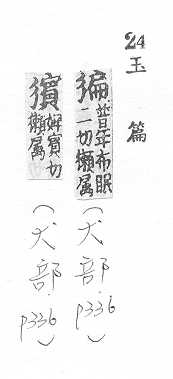 24
玉篇
猵 昔年布眠
二切獺属
(犬部.p336)
獱 婢賓切
獺属
(犬部.p336)